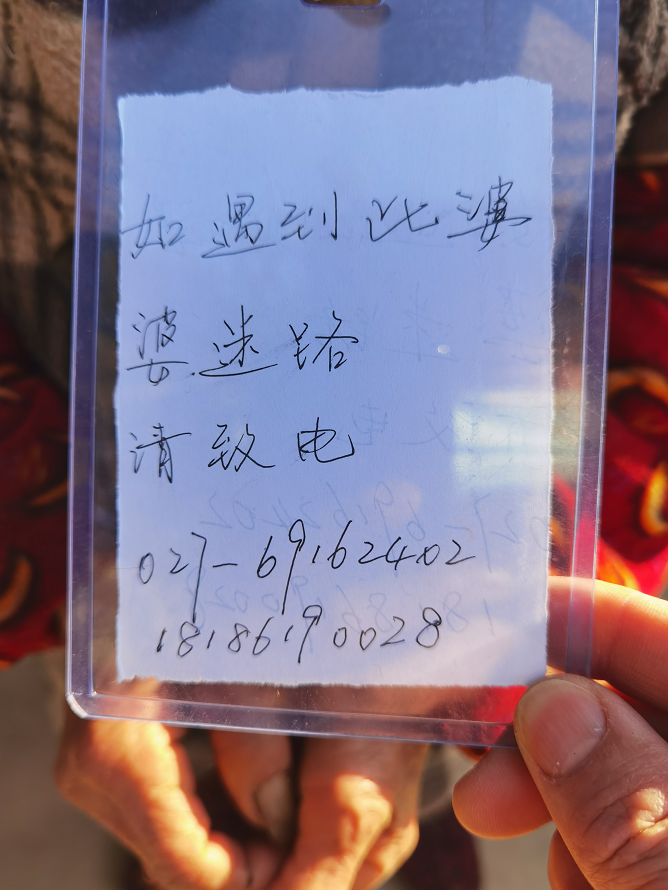 如遇到此婆
婆迷路
请致电
027-69162402
18186190028